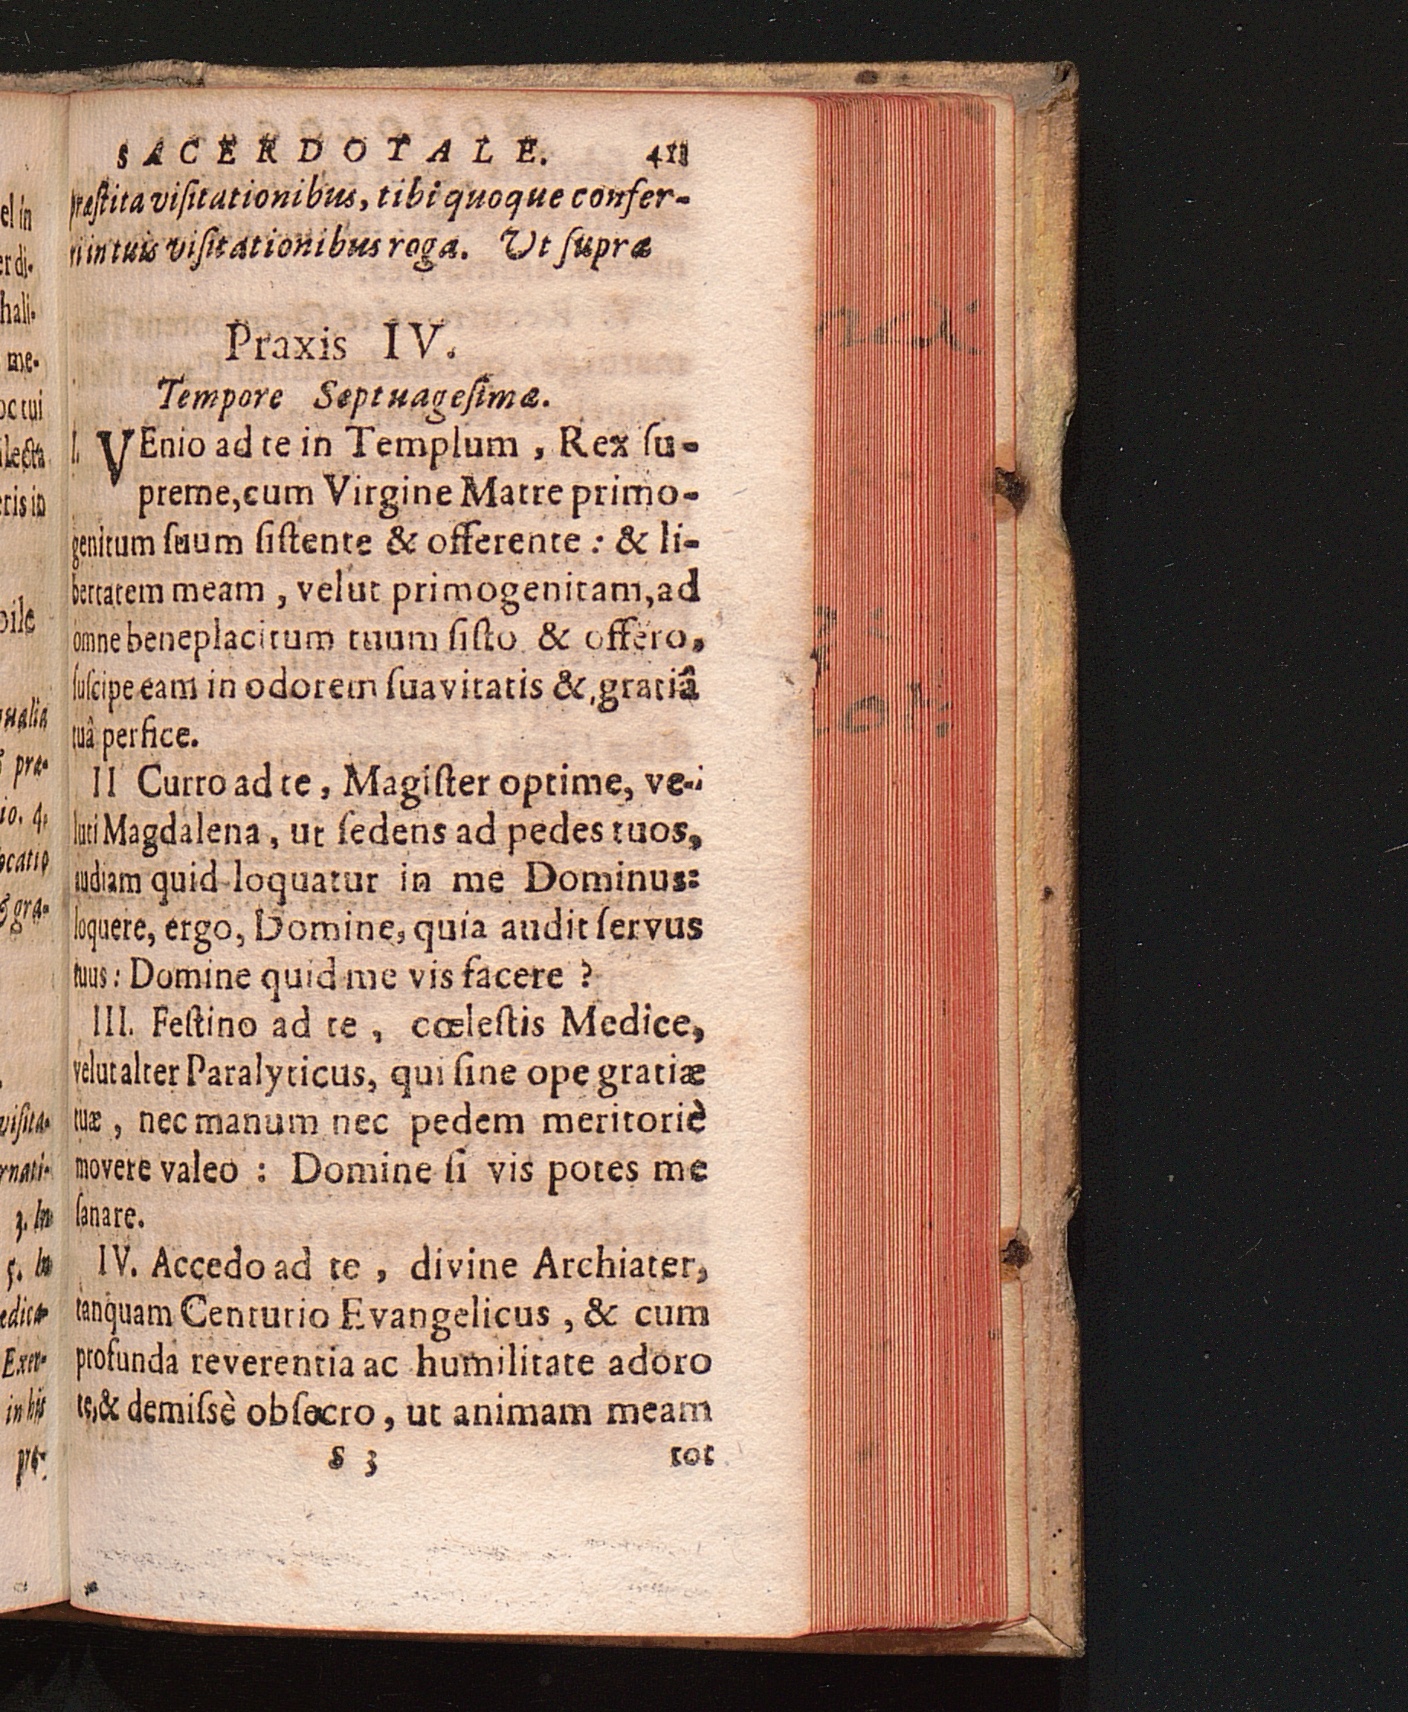 SACERDOTALE. 411
præſtita viſitationibus, tibi quoque confer-
ri in tuis viſitationibus roga. Ut ſupra
Praxis IV.
Tempore Septuageſimæ.
I. VEnio ad te in Templum, Rex ſu-
preme, cum Virgine Matre primo-
genitum ſuum ſiſtente & offerente: & li-
bertatem meam, velut primogenitam, ad
omne beneplacitum tuum ſiſto & offero,
ſuſcipe eam in odorem ſuavitatis &, gratiâ
tuâ perfice.
II Curro ad te, Magiſter optime, ve-
luti Magdalena, ut ſedens ad pedes tuos,
audiam quid loquatur in me Dominus:
loquere, ergo, Domine, quia audit ſervus
tuus: Domine quid me vis facere?
III. Feſtino ad te, cœleſtis Medice,
velut alter Paralyticus, qui ſine ope gratiæ
tuæ, nec manum nec pedem meritoriè
movere valeo: Domine ſi vis potes me
ſanare.
IV. Accedo ad te, divine Archiater,
tanquam Centurio Evangelicus, & cum
profunda reverentia ac humilitate adoro
te, & demiſsè obſecro, ut animam meam
S 3 tot